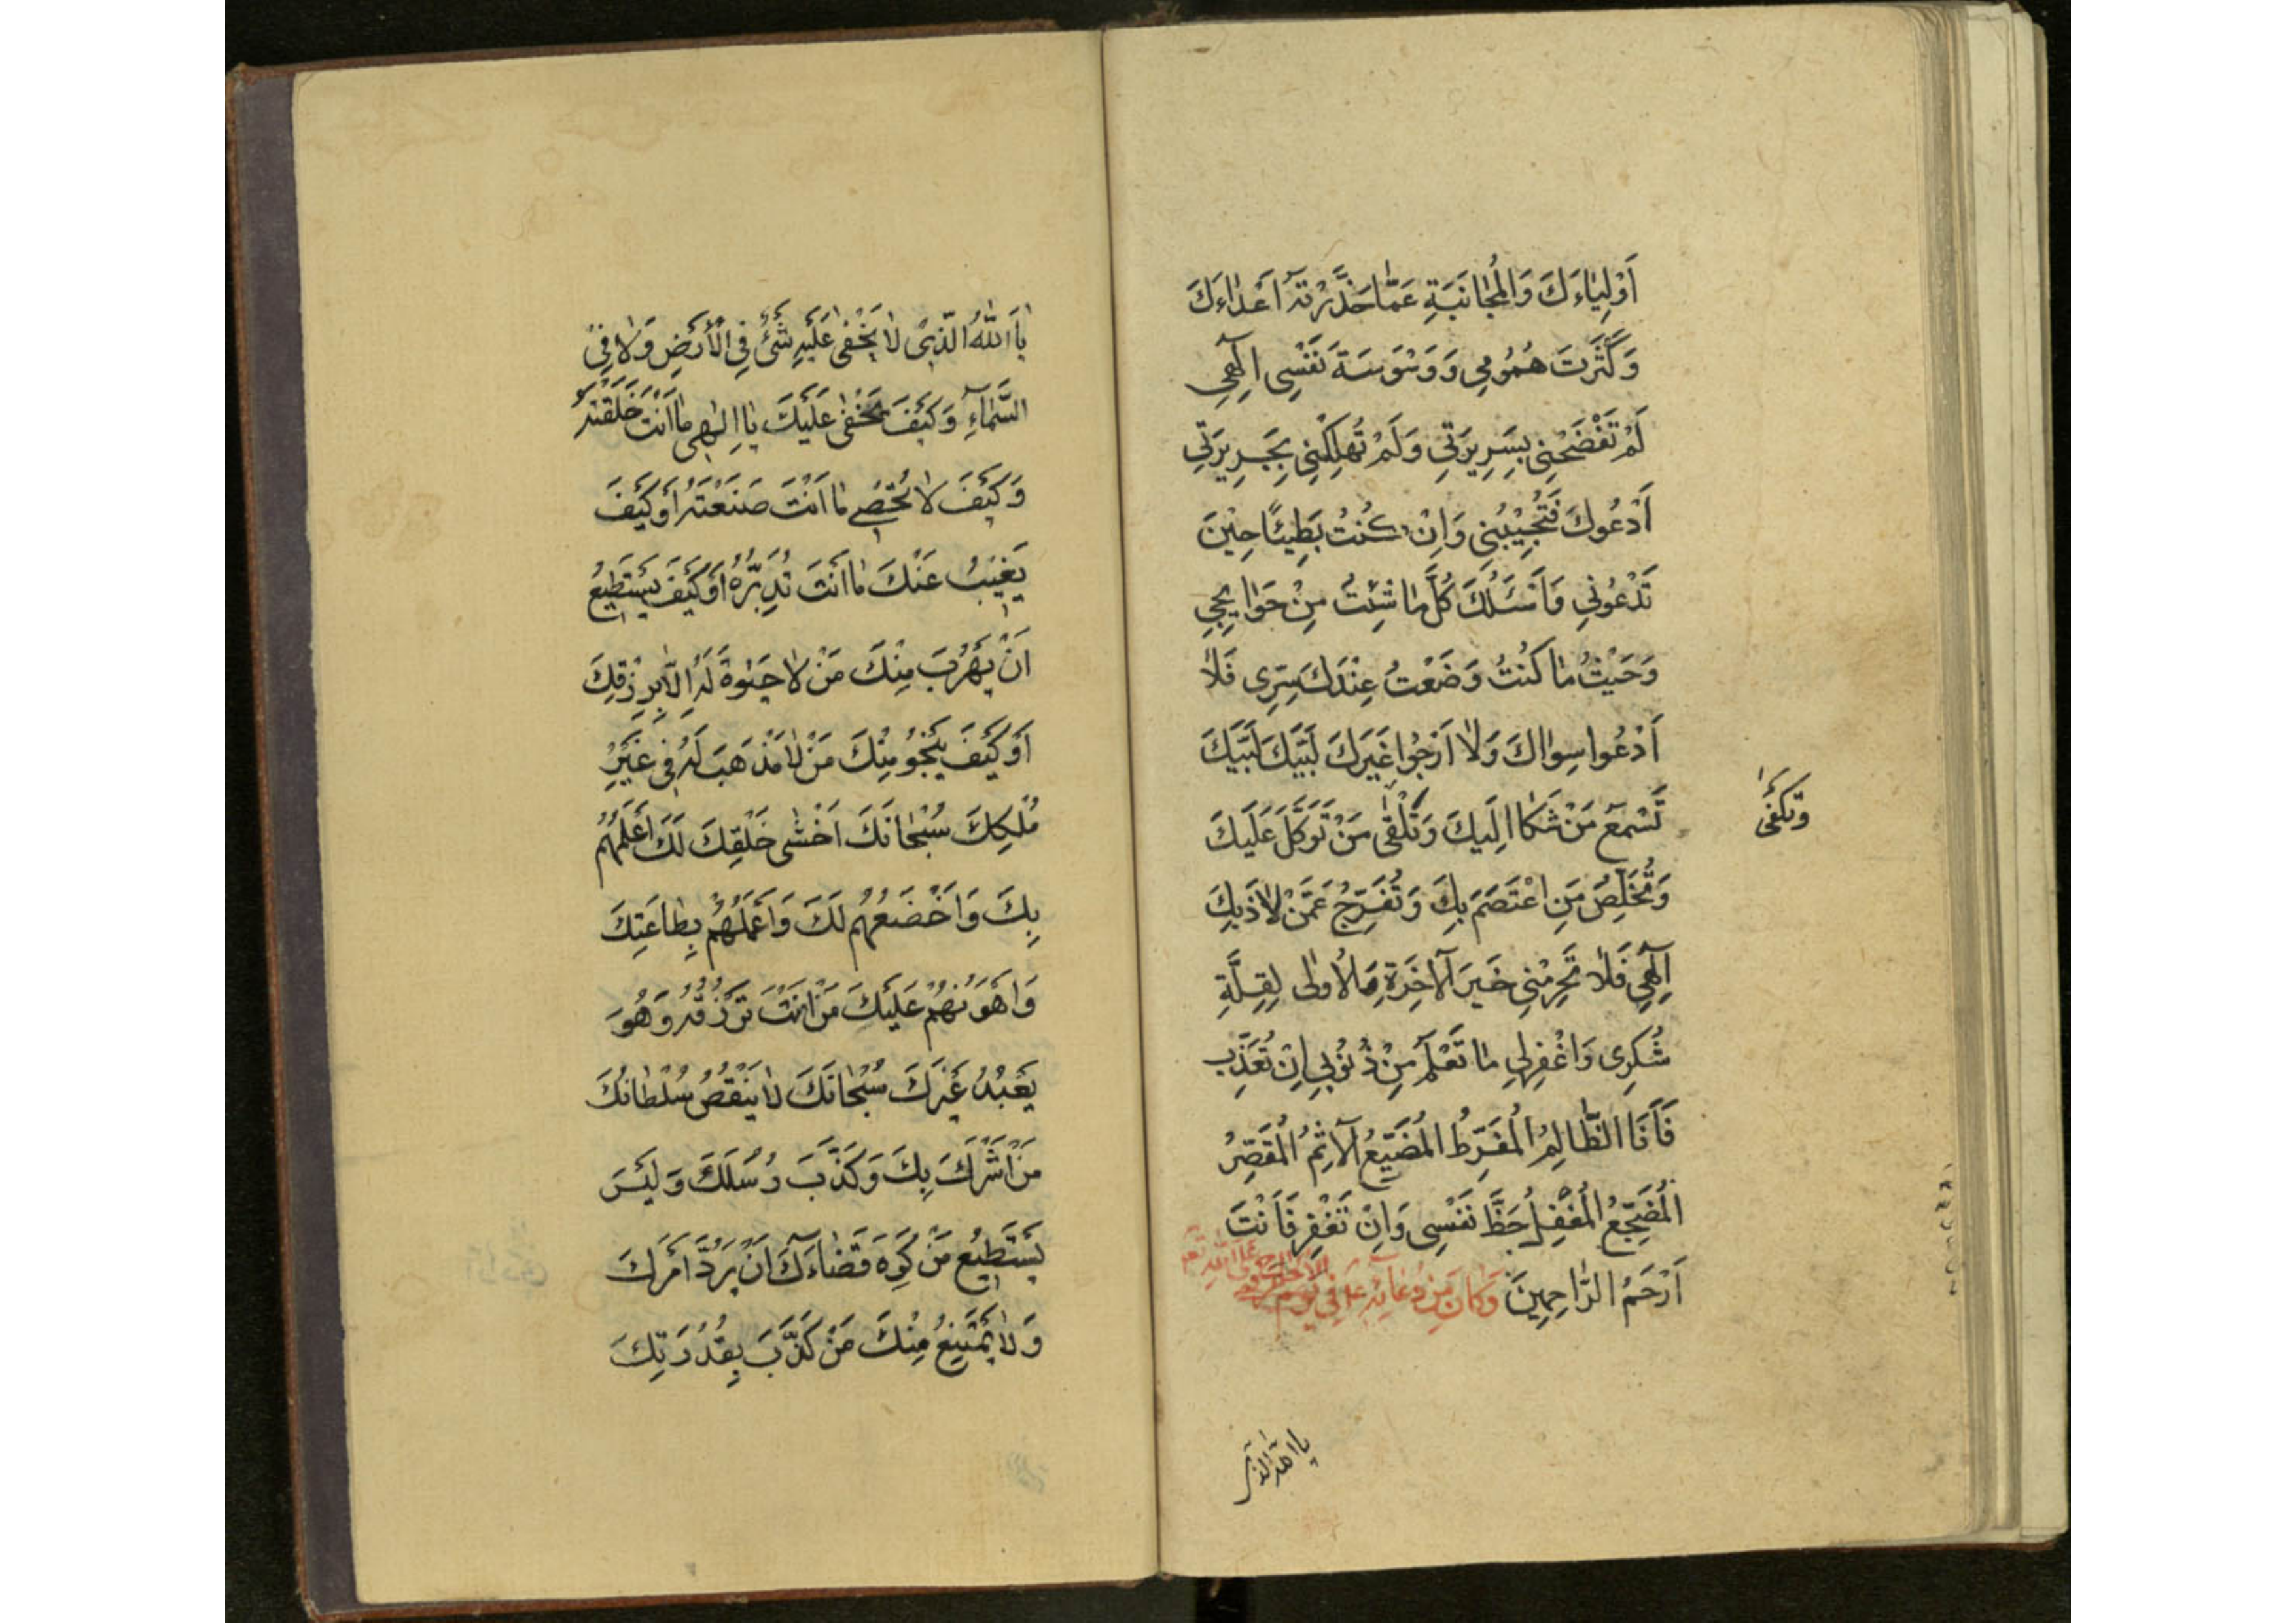 أَوْلِيَاءَكَ وَالْمُجَانَبَةِ عَمَّا حَذَّرْتَهُ أَعْدَاءَكَ
وَكَثُرَتْ هُمُومِي وَوَسْوَسَةَ نَفْسِي إِلٰهِي
لَمْ تَفْضَحْنِي بِسَرِيرَتِي وَلَمْ تُهْلِكْنِي بِجَرِيرَتِي
أَدْعُوكَ فَتُجِيْبُنِي وَاِنْ كُنْتُ بَطِيئًا حِيْنَ
تَدْعُونِي وَاَسْئَلُكَ كُلَّ مَا شِئْتُ مِنْ حَوَايِجِي
وَحَيْثُ مَا كُنْتُ وَضَعْتُ عِنْدَكَ سِرِّي فَلَا
أَدْعُوا سِوَاكَ وَلَا أَرْجُوا غَيْرَكَ لَبَّيْكَ لَبَّيْكَ
تَسْمَعُ مَنْ شَكَا اِلَيكَ وَتَلْقٰى مَنْ تَوَكَّلَ عَلَيكَ
وَتَكْفِى
وَتُخَلِّصُ مَنِ اعْتَصَمَ بِكَ وَتُفَرِّجُ عَمَّنْ لَاذَ بِكَ
اِلٰهِي فَلَا تَحْرِمْنِي خَيرَ الْآخِرَةِ وَالْأُولٰى لِقِلَّةِ
شُكْرِى وَاغْفِرلِي مَا تَعْلَمُ مِنْ ذُنُوبِي اِنْ تُعَذِّب
فَأَنَا الظَّالِمُ الْمُفَرِّطُ الْمُضَيِّعُ الْآثِمُ الْمُقَصِّرُ
الْمُضَجِّعُ الْمُغْفِلُ حَظَّ نَفْسِى وَاِنْ تَغْفِر فَاَنْتَ
اَرْحَمُ الرَّاحِمِينَ وَكَانَ مِنْ دُعَائِهِ ع فِي يَوْمِ
يا الله الذى
يَا اَللّٰهُ الَّذِىْ لَا يَخْفٰى عَلَيْهِ شَىْءٌ فِي الْأَرْضِ وَلَا فِى
السَّمَآءِ وَكَيْفَ يَخْفٰى عَلَيْكَ يَا اِلٰهِى مَا اَنْتَ خَلَقْتَهُ
وَكَيْفَ لَا تُحْصِى مَا اَنْتَ صَنَعْتَهُ أَوْ كَيْفَ
يَغِيْبُ عَنْكَ مَا اَنْتَ تُدَبِّرُهُ اَوْ كَيْفَ يَسْتَطِيعُ
اَنْ يَهْرُبَ مِنْكَ مَنْ لَا حَيٰوةَ لَهُ اِلَّا بِرِزْقِكَ
اَوْ كَيْفَ يَنْجُو مِنْكَ مَنْ لَا مَذْهَبَ لَهُ فِى غَيْرِ
مُلْكِكَ سُبْحَانَكَ اَخْشٰى خَلْقِكَ لَكَ اَعْلَمُهُمْ
بِكَ وَاَخْضَعُهُمْ لَكَ وَاَعْمَلُهُمْ بِطَاعَتِكَ
وَاَهْوَنُهُمْ عَلَيْكَ مَنْ اَنْتَ تَرْزُقُهُ وَهُوَ
يَعْبُدُ غَيْرَكَ سُبْحَانَكَ لَا يَنْقُصُ سُلْطَانَكَ
مَنْ اَشْرَكَ بِكَ وَكَذَّبَ رُسُلَكَ وَلَيْسَ
يَسْتَطِيعُ مَنْ كَرِهَ قَضَاءَكَ اَنْ يَرُدَّ اَمْرَكَ
وَلَا يَمْتَنِعُ مِنْكَ مَنْ كَذَّبَ بِقُدْرَتِكَ